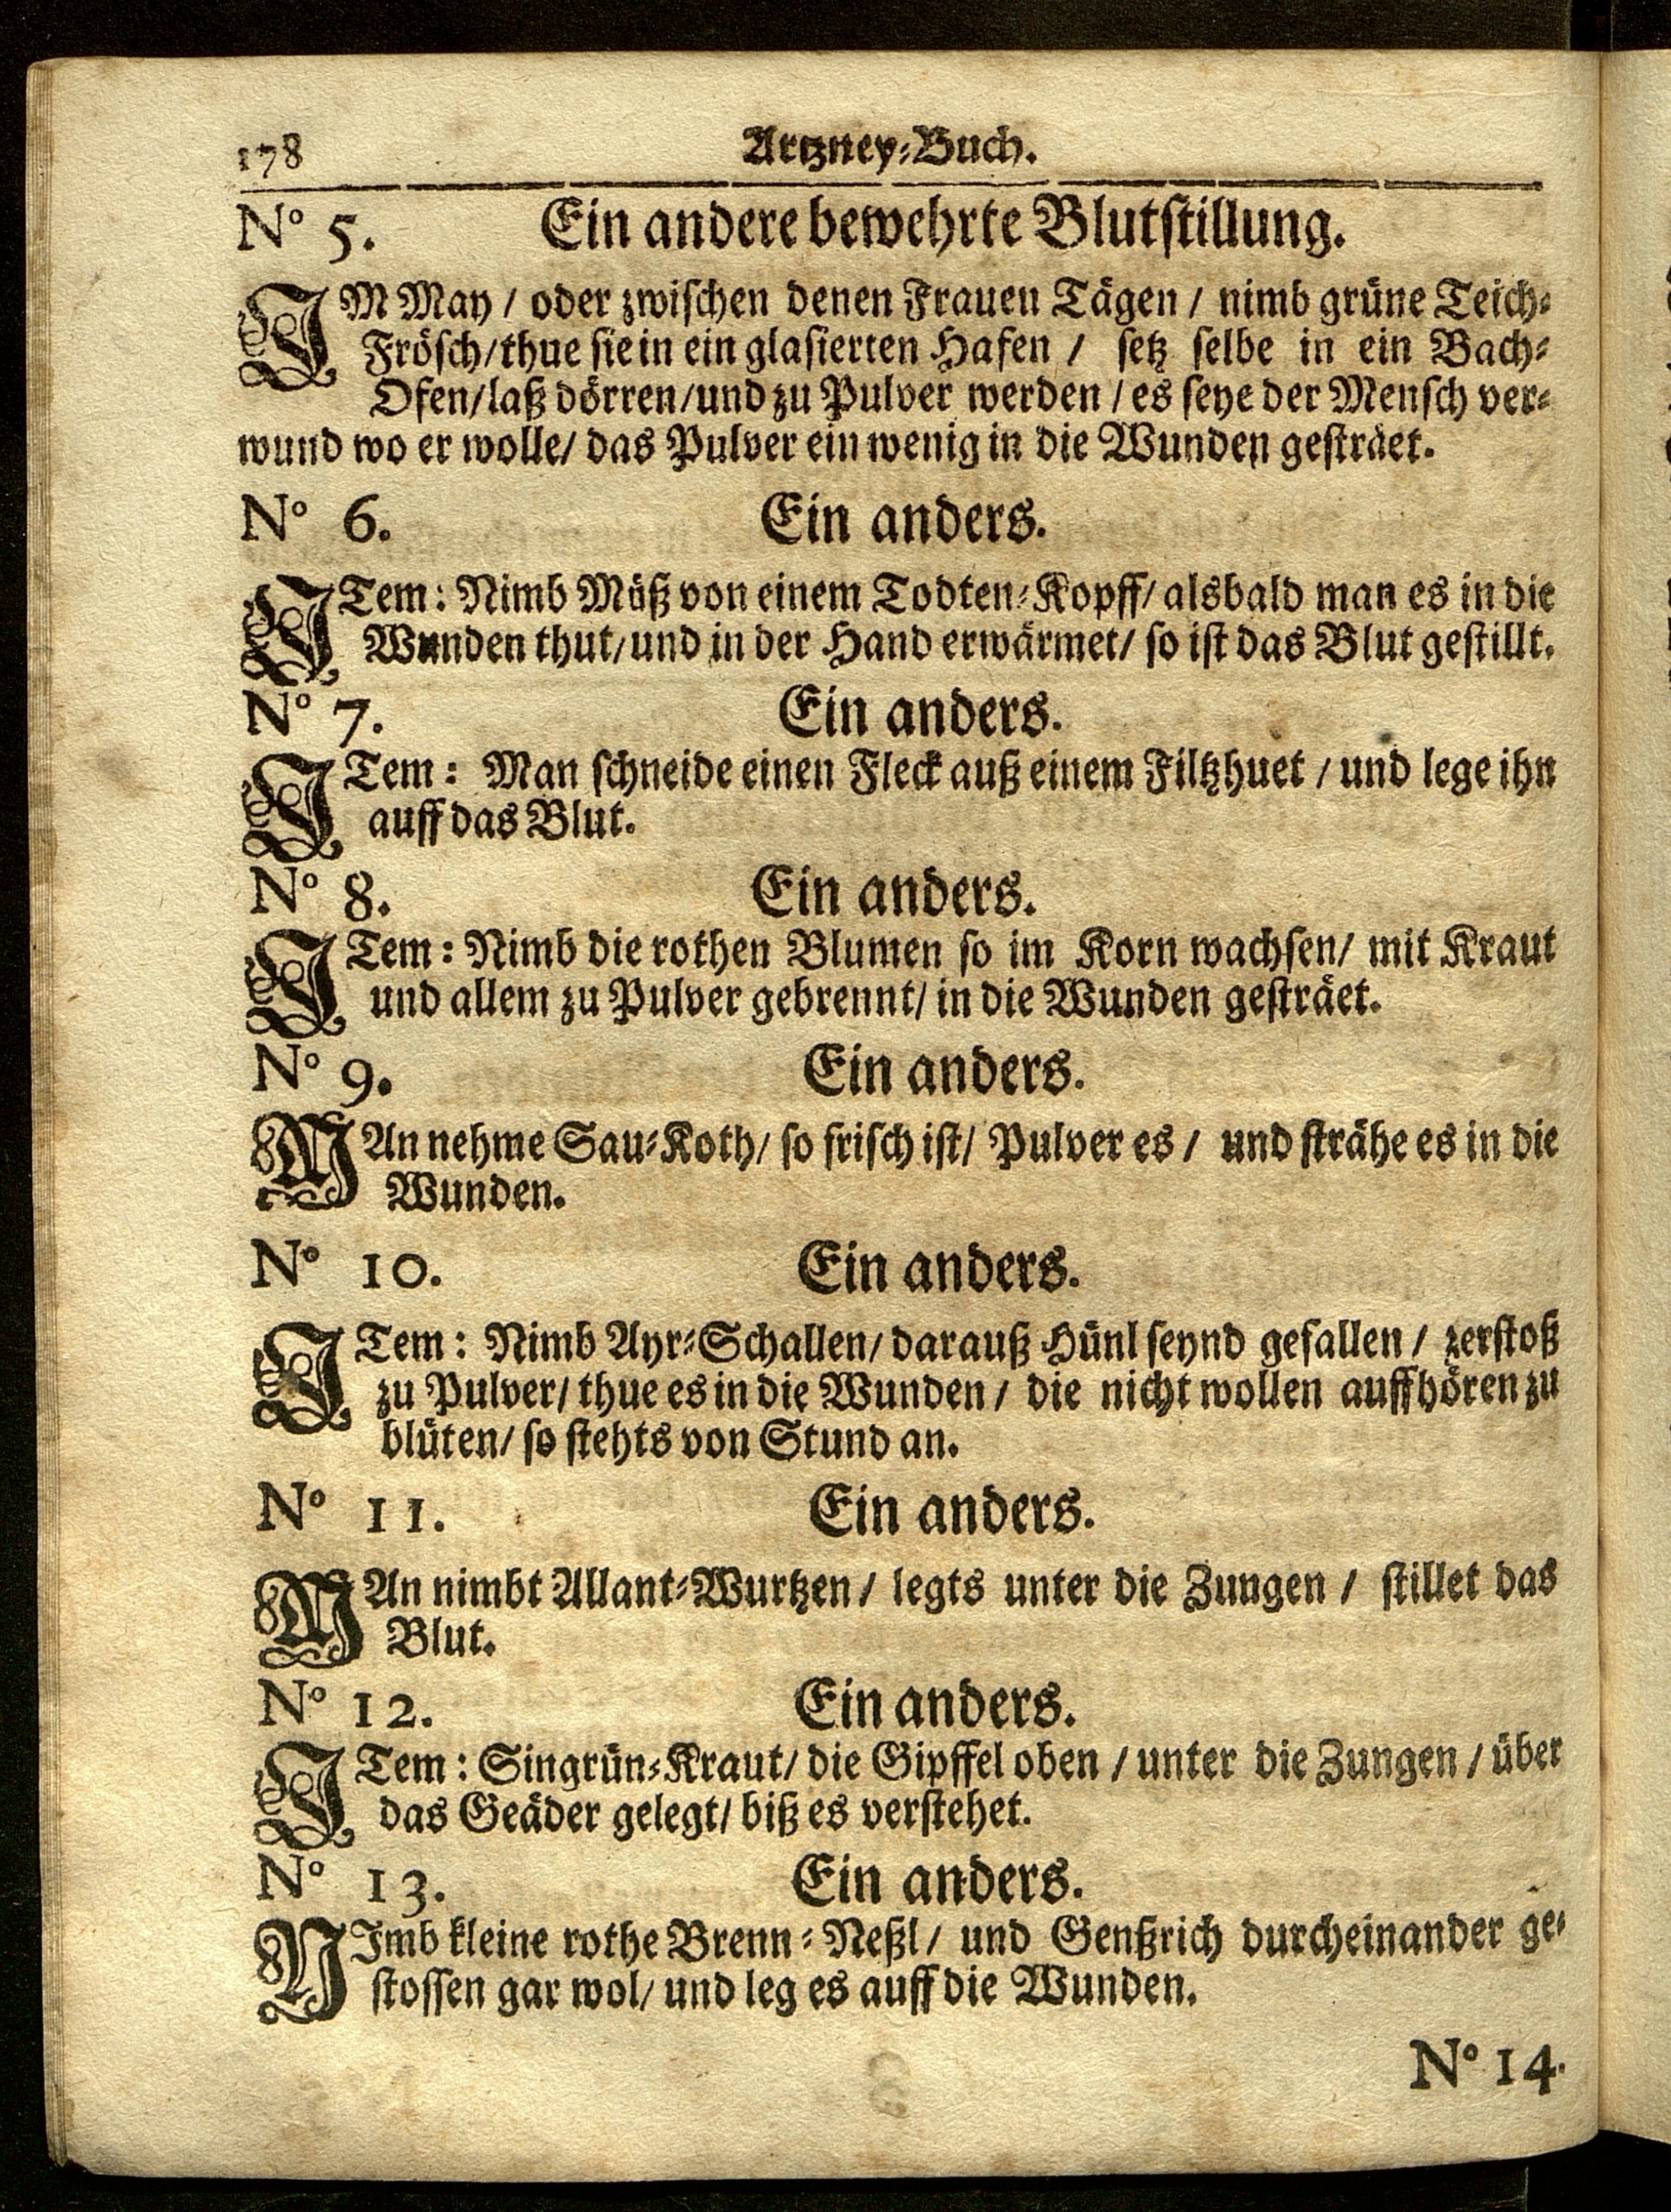 178 Artzney-Buch.
No 5. Ein andere bewehrte Blutstillung.
IM May / oder zwischen denen Frauen Tägen / nimb grüne Teich-
Frösch/thue sie in ein glasierten Hafen / setz selbe in ein Bach-
Ofen/laß dörren/und zu Pulver werden / es seye der Mensch ver-
wund wo er wolle/ das Pulver ein wenig in die Wunden gesträet.
No 6. Ein anders.
ITem: Nimb Müß von einem Todten-Kopff/ alsbald man es in die
Wunden thut/und in der Hand erwärmet/ so ist das Blut gestillt.
No 7. Ein anders.
ITem: Man schneide einen Fleck auß einem Filtzhuet / und lege ihn
auff das Blut.
No 8. Ein anders.
ITem: Nimb die rothen Blumen so im Korn wachsen/ mit Kraut
und allem zu Pulver gebrennt/ in die Wunden gesträet.
No 9. Ein anders.
MAn nehme Sau-Koth/ so frisch ist/ Pulver es / und strähe es in die
Wunden.
No 10. Ein anders.
ITem: Nimb Ayr-Schallen/ darauß Hünl seynd gefallen / zerstoß
zu Pulver/ thue es in die Wunden / die nicht wollen auffhören zu
blüten/ so stehts von Stund an.
No 11. Ein anders.
MAn nimbt Allant-Wurtzen / legts unter die Zungen / stillet das
Blut.
No 12. Ein anders.
ITem: Singrün-Kraut/ die Gipffel oben / unter die Zungen / über
das Geäder gelegt/ biß es verstehet.
No 13. Ein anders.
NImb kleine rothe Brenn-Neßl/ und Genßrich durcheinander ge-
stossen gar wol/ und leg es auff die Wunden.
No 14.